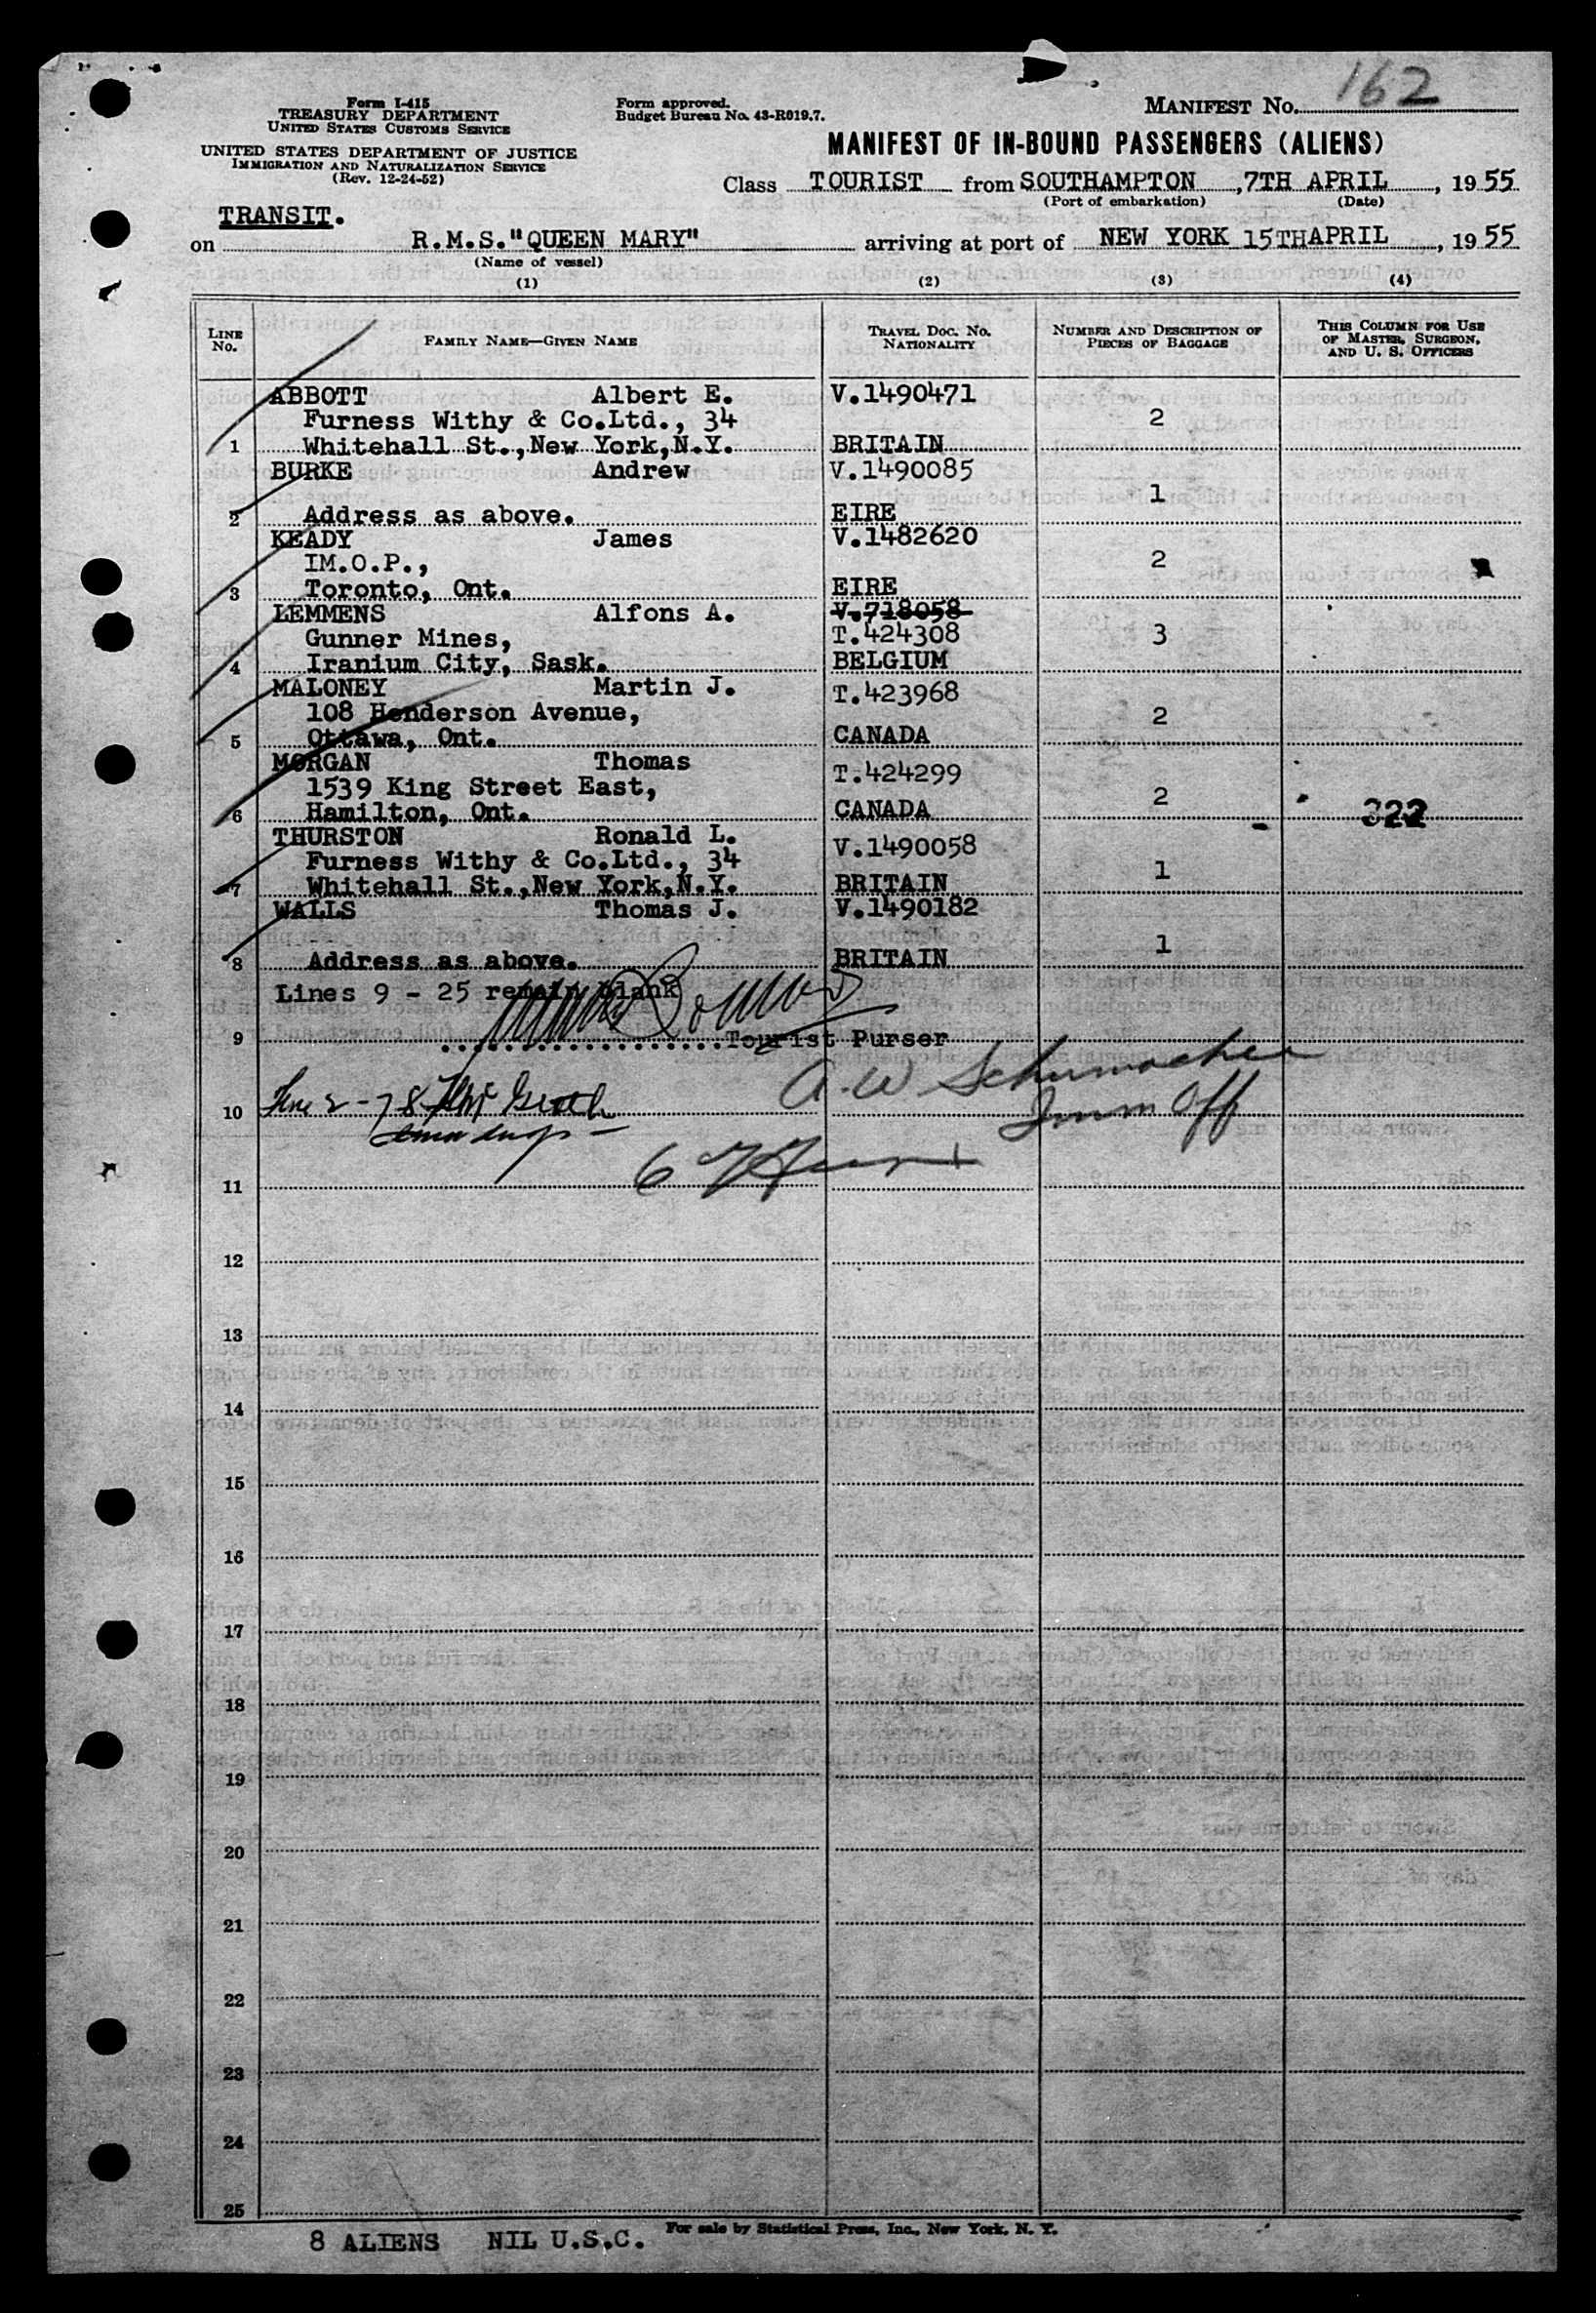 162
Form I-415
TREASURY DEPARTMENT
UNITED STATES CUSTOMS SERVICE
Form approved.
Budget Bureau No. 43-R019.7.
MANIFEST NO.
UNITED STATES DEPARTMENT OF JUSTICE
IMMIGRATION AND NATURALIZATION SERVICE
(Rev. 12-24-52)
MANIFEST OF IN-BOUND PASSENGERS (ALIENS)
Class TOURIST from SOUTHAMPTON, 7TH APRIL, 1955
(Port of embarkation) (Date)
TRANSIT.
on R.M.S."QUEEN MARY" arriving at port of NEW YORK 15TH APRIL, 1955
(Name of vessel)
(1) (2) (3) (4)
LINE NO. FAMILY NAME—GIVEN NAME TRAVEL DOC. NO. NATIONALITY NUMBER AND DESCRIPTION OF PIECES OF BAGGAGE THIS COLUMN FOR USE OF MASTER, SURGEON, AND U. S. OFFICERS
ABBOTT Albert E. V.1490471
Furness Withy & Co.Ltd., 34 2
1 Whitehall St.,New York,N.Y. BRITAIN
BURKE Andrew V.1490085
1
2 Address as above. EIRE
KEADY James V.1482620
IM.O.P., 2
3 Toronto, Ont. EIRE
LEMMENS Alfons A. V.718058
Gunner Mines, T.424308 3
4 Iranium City, Sask. BELGIUM
MALONEY Martin J. T.423968
108 Henderson Avenue, 2
5 Ottawa, Ont. CANADA
MORGAN Thomas T.424299
1539 King Street East, 2
6 Hamilton, Ont. CANADA 322
THURSTON Ronald L. V.1490058
Furness Withy & Co.Ltd., 34 1
7 Whitehall St.,New York,N.Y. BRITAIN
WALLS Thomas J. V.1490182
1
8 Address as above. BRITAIN
Lines 9 - 25 remain blank
9 Tourist Purser
A. W Schumacher
10 Imm Off
11
12
13
14
15
16
17
18
19
20
21
22
23
24
25
8 ALIENS NIL U.S.C. For sale by Statistical Press, Inc., New York, N. Y.